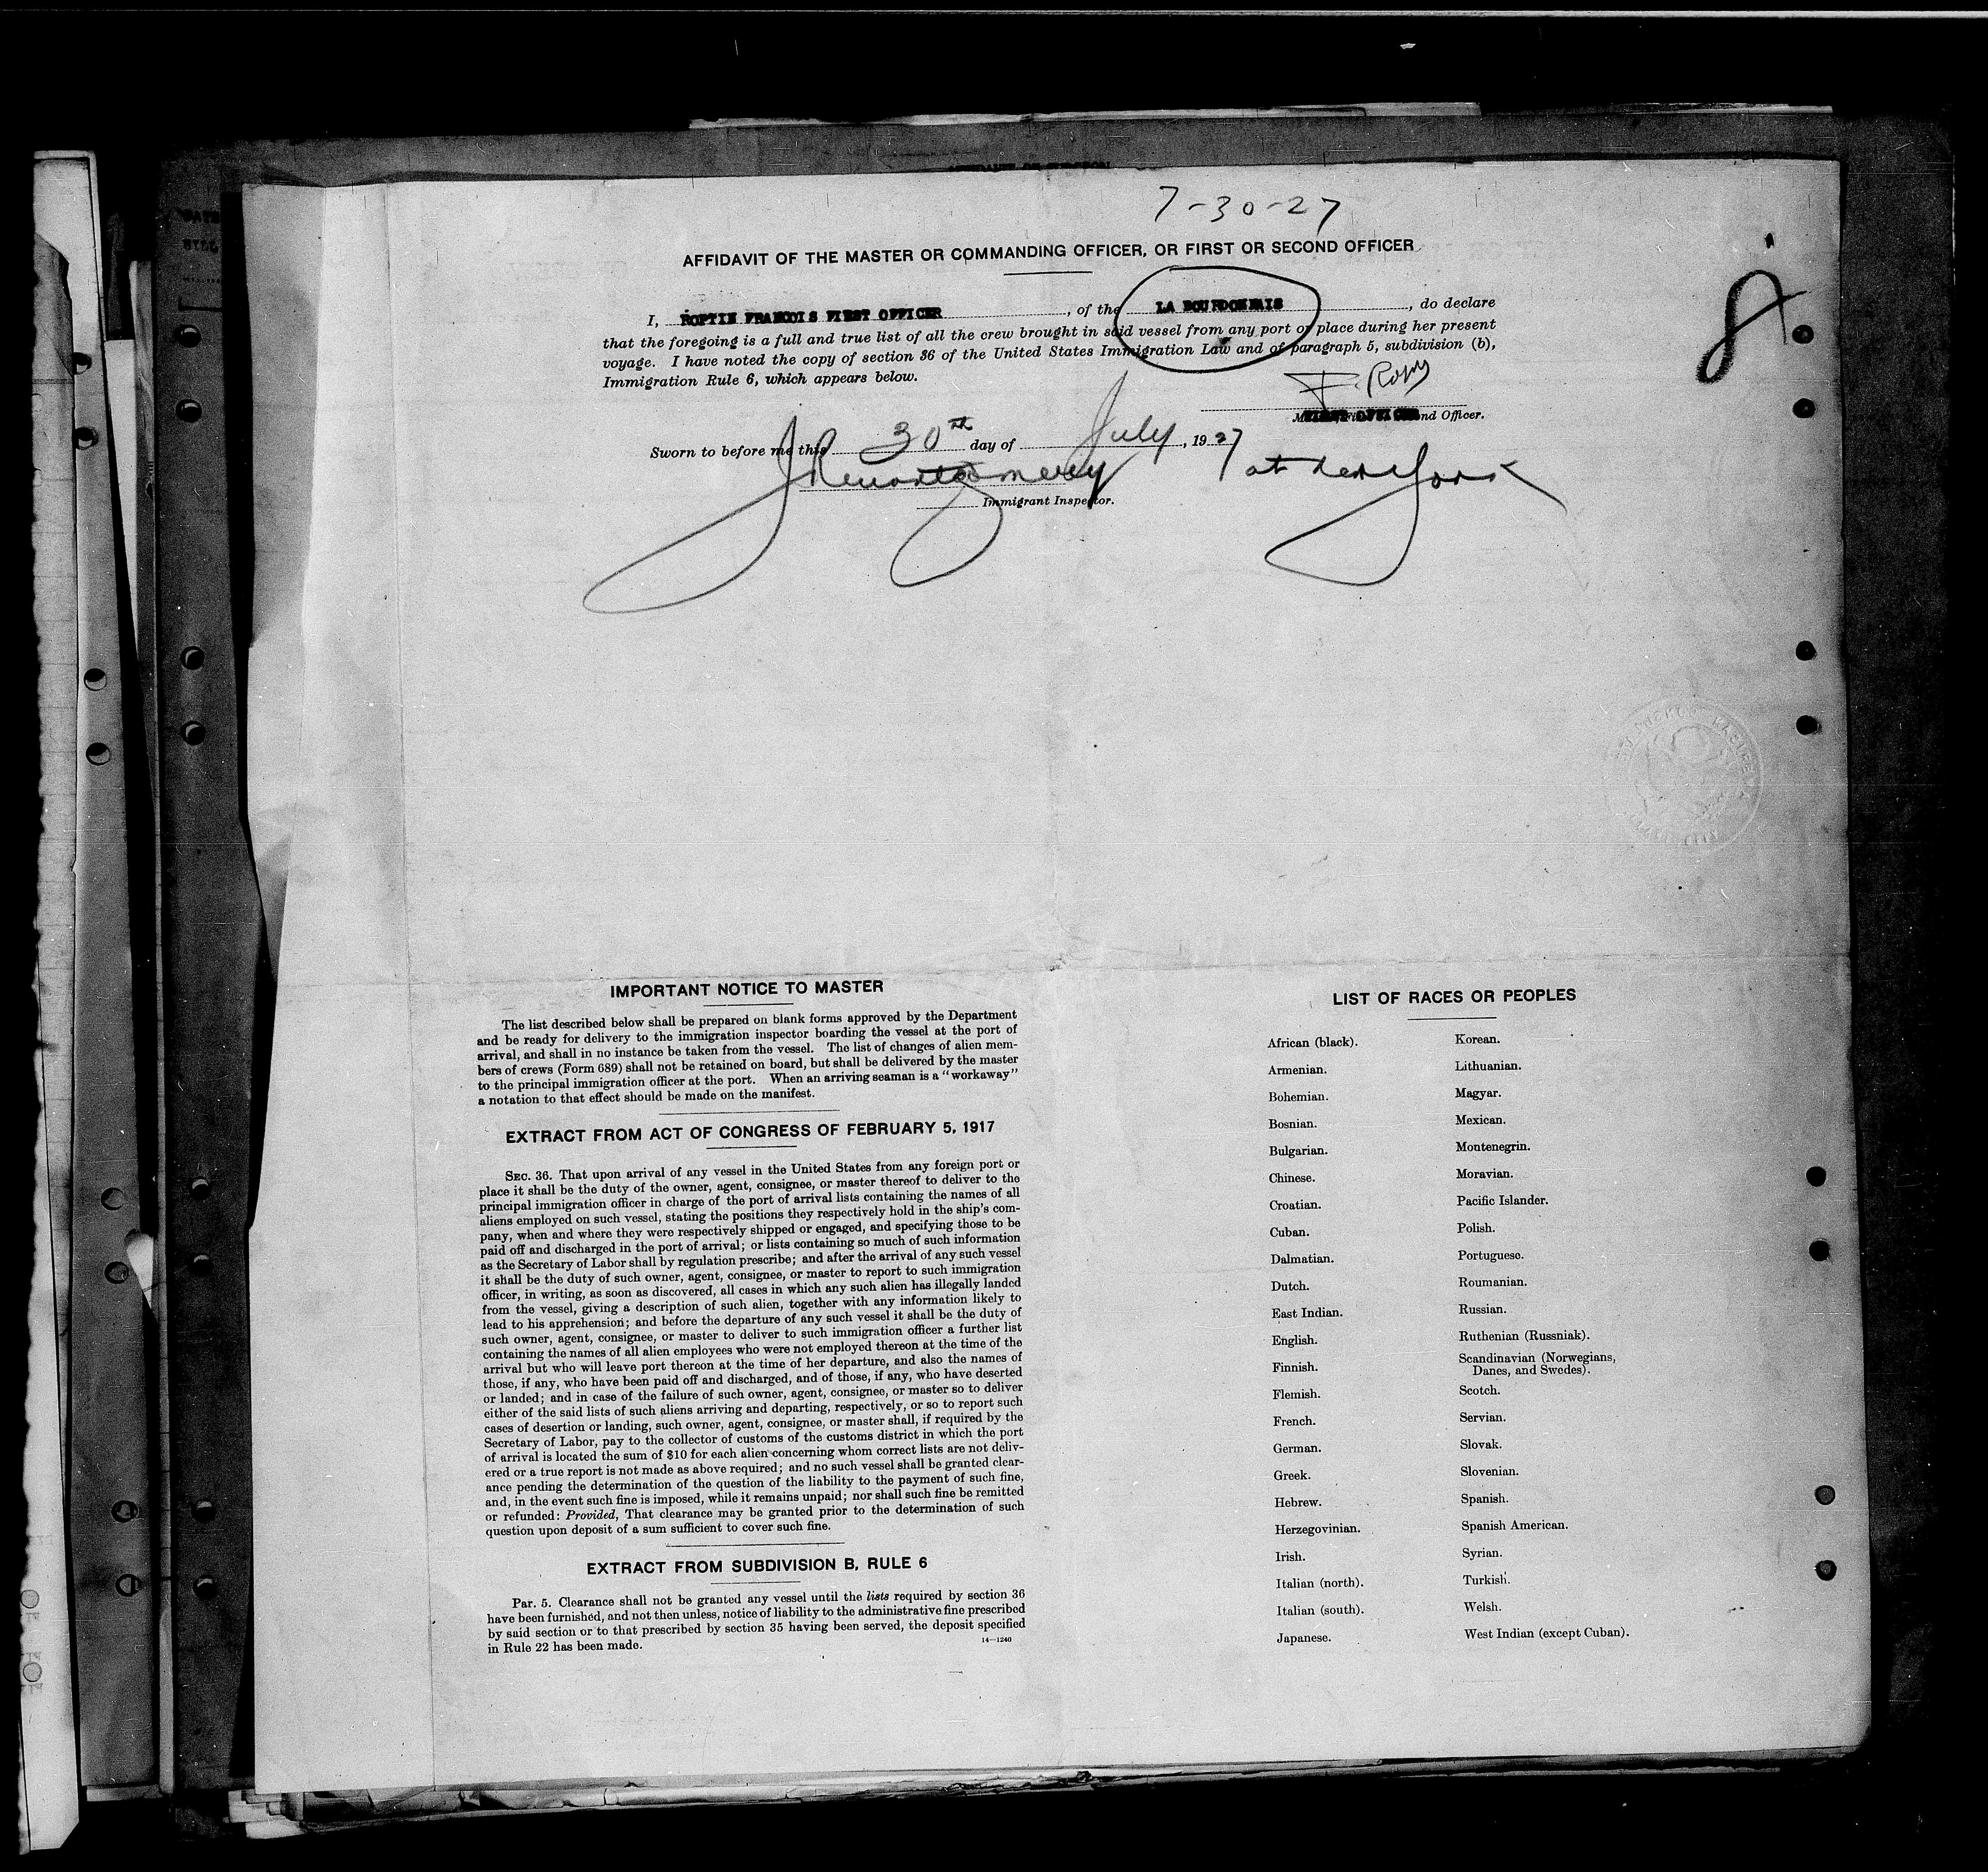 7-30-27
AFFIDAVIT OF THE MASTER OR COMMANDING OFFICER, OR FIRST OR SECOND OFFICER
I, ROPTIN FRANCOIS FIRST OFFICER, of the LA BOURDONNAIS, do declare
that the foregoing is a full and true list of all the crew brought in said vessel from any port or place during her present
voyage. I have noted the copy of section 36 of the United States Immigration Law and of paragraph 5, subdivision (b),
Immigration Rule 6, which appears below.
FIRST OFFICER nd Officer.
Sworn to before me this 30th day of July, 1927
at New York
Immigrant Inspector.
IMPORTANT NOTICE TO MASTER
The list described below shall be prepared on blank forms approved by the Department
and be ready for delivery to the immigration inspector boarding the vessel at the port of
arrival, and shall in no instance be taken from the vessel. The list of changes of alien mem-
bers of crews (Form 689) shall not be retained on board, but shall be delivered by the master
to the principal immigration officer at the port. When an arriving seaman is a "workaway"
a notation to that effect should be made on the manifest.
EXTRACT FROM ACT OF CONGRESS OF FEBRUARY 5, 1917
SEC. 36. That upon arrival of any vessel in the United States from any foreign port or
place it shall be the duty of the owner, agent, consignee, or master thereof to deliver to the
principal immigration officer in charge of the port of arrival lists containing the names of all
aliens employed on such vessel, stating the positions they respectively hold in the ship's com-
pany, when and where they were respectively shipped or engaged, and specifying those to be
paid off and discharged in the port of arrival; or lists containing so much of such information
as the Secretary of Labor shall by regulation prescribe; and after the arrival of any such vessel
it shall be the duty of such owner, agent, consignee, or master to report to such immigration
officer, in writing, as soon as discovered, all cases in which any such alien has illegally landed
from the vessel, giving a description of such alien, together with any information likely to
lead to his apprehension; and before the departure of any such vessel it shall be the duty of
such owner, agent, consignee, or master to deliver to such immigration officer a further list
containing the names of all alien employees who were not employed thereon at the time of the
arrival but who will leave port thereon at the time of her departure, and also the names of
those, if any, who have been paid off and discharged, and of those, if any, who have deserted
or landed; and in case of the failure of such owner, agent, consignee, or master so to deliver
either of the said lists of such aliens arriving and departing, respectively, or so to report such
cases of desertion or landing, such owner, agent, consignee, or master shall, if required by the
Secretary of Labor, pay to the collector of customs of the customs district in which the port
of arrival is located the sum of $10 for each alien concerning whom correct lists are not deliv-
ered or a true report is not made as above required; and no such vessel shall be granted clear-
ance pending the determination of the question of the liability to the payment of such fine,
and, in the event such fine is imposed, while it remains unpaid; nor shall such fine be remitted
or refunded: Provided, That clearance may be granted prior to the determination of such
question upon deposit of a sum sufficient to cover such fine.
EXTRACT FROM SUBDIVISION B, RULE 6
PAR. 5. Clearance shall not be granted any vessel until the lists required by section 36
have been furnished, and not then unless, notice of liability to the administrative fine prescribed
by said section or to that prescribed by section 35 having been served, the deposit specified
in Rule 22 has been made.
14—1240
LIST OF RACES OR PEOPLES
African (black).
Armenian.
Bohemian.
Bosnian.
Bulgarian.
Chinese.
Croatian.
Cuban.
Dalmatian.
Dutch.
East Indian.
English.
Finnish.
Flemish.
French.
German.
Greek.
Hebrew.
Herzegovinian.
Irish.
Italian (north).
Italian (south).
Japanese.
Korean.
Lithuanian.
Magyar.
Mexican.
Montenegrin.
Moravian.
Pacific Islander.
Polish.
Portuguese.
Roumanian.
Russian.
Ruthenian (Russniak).
Scandinavian (Norwegians,
Danes, and Swedes).
Scotch.
Servian.
Slovak.
Slovenian.
Spanish.
Spanish American.
Syrian.
Turkish.
Welsh.
West Indian (except Cuban).